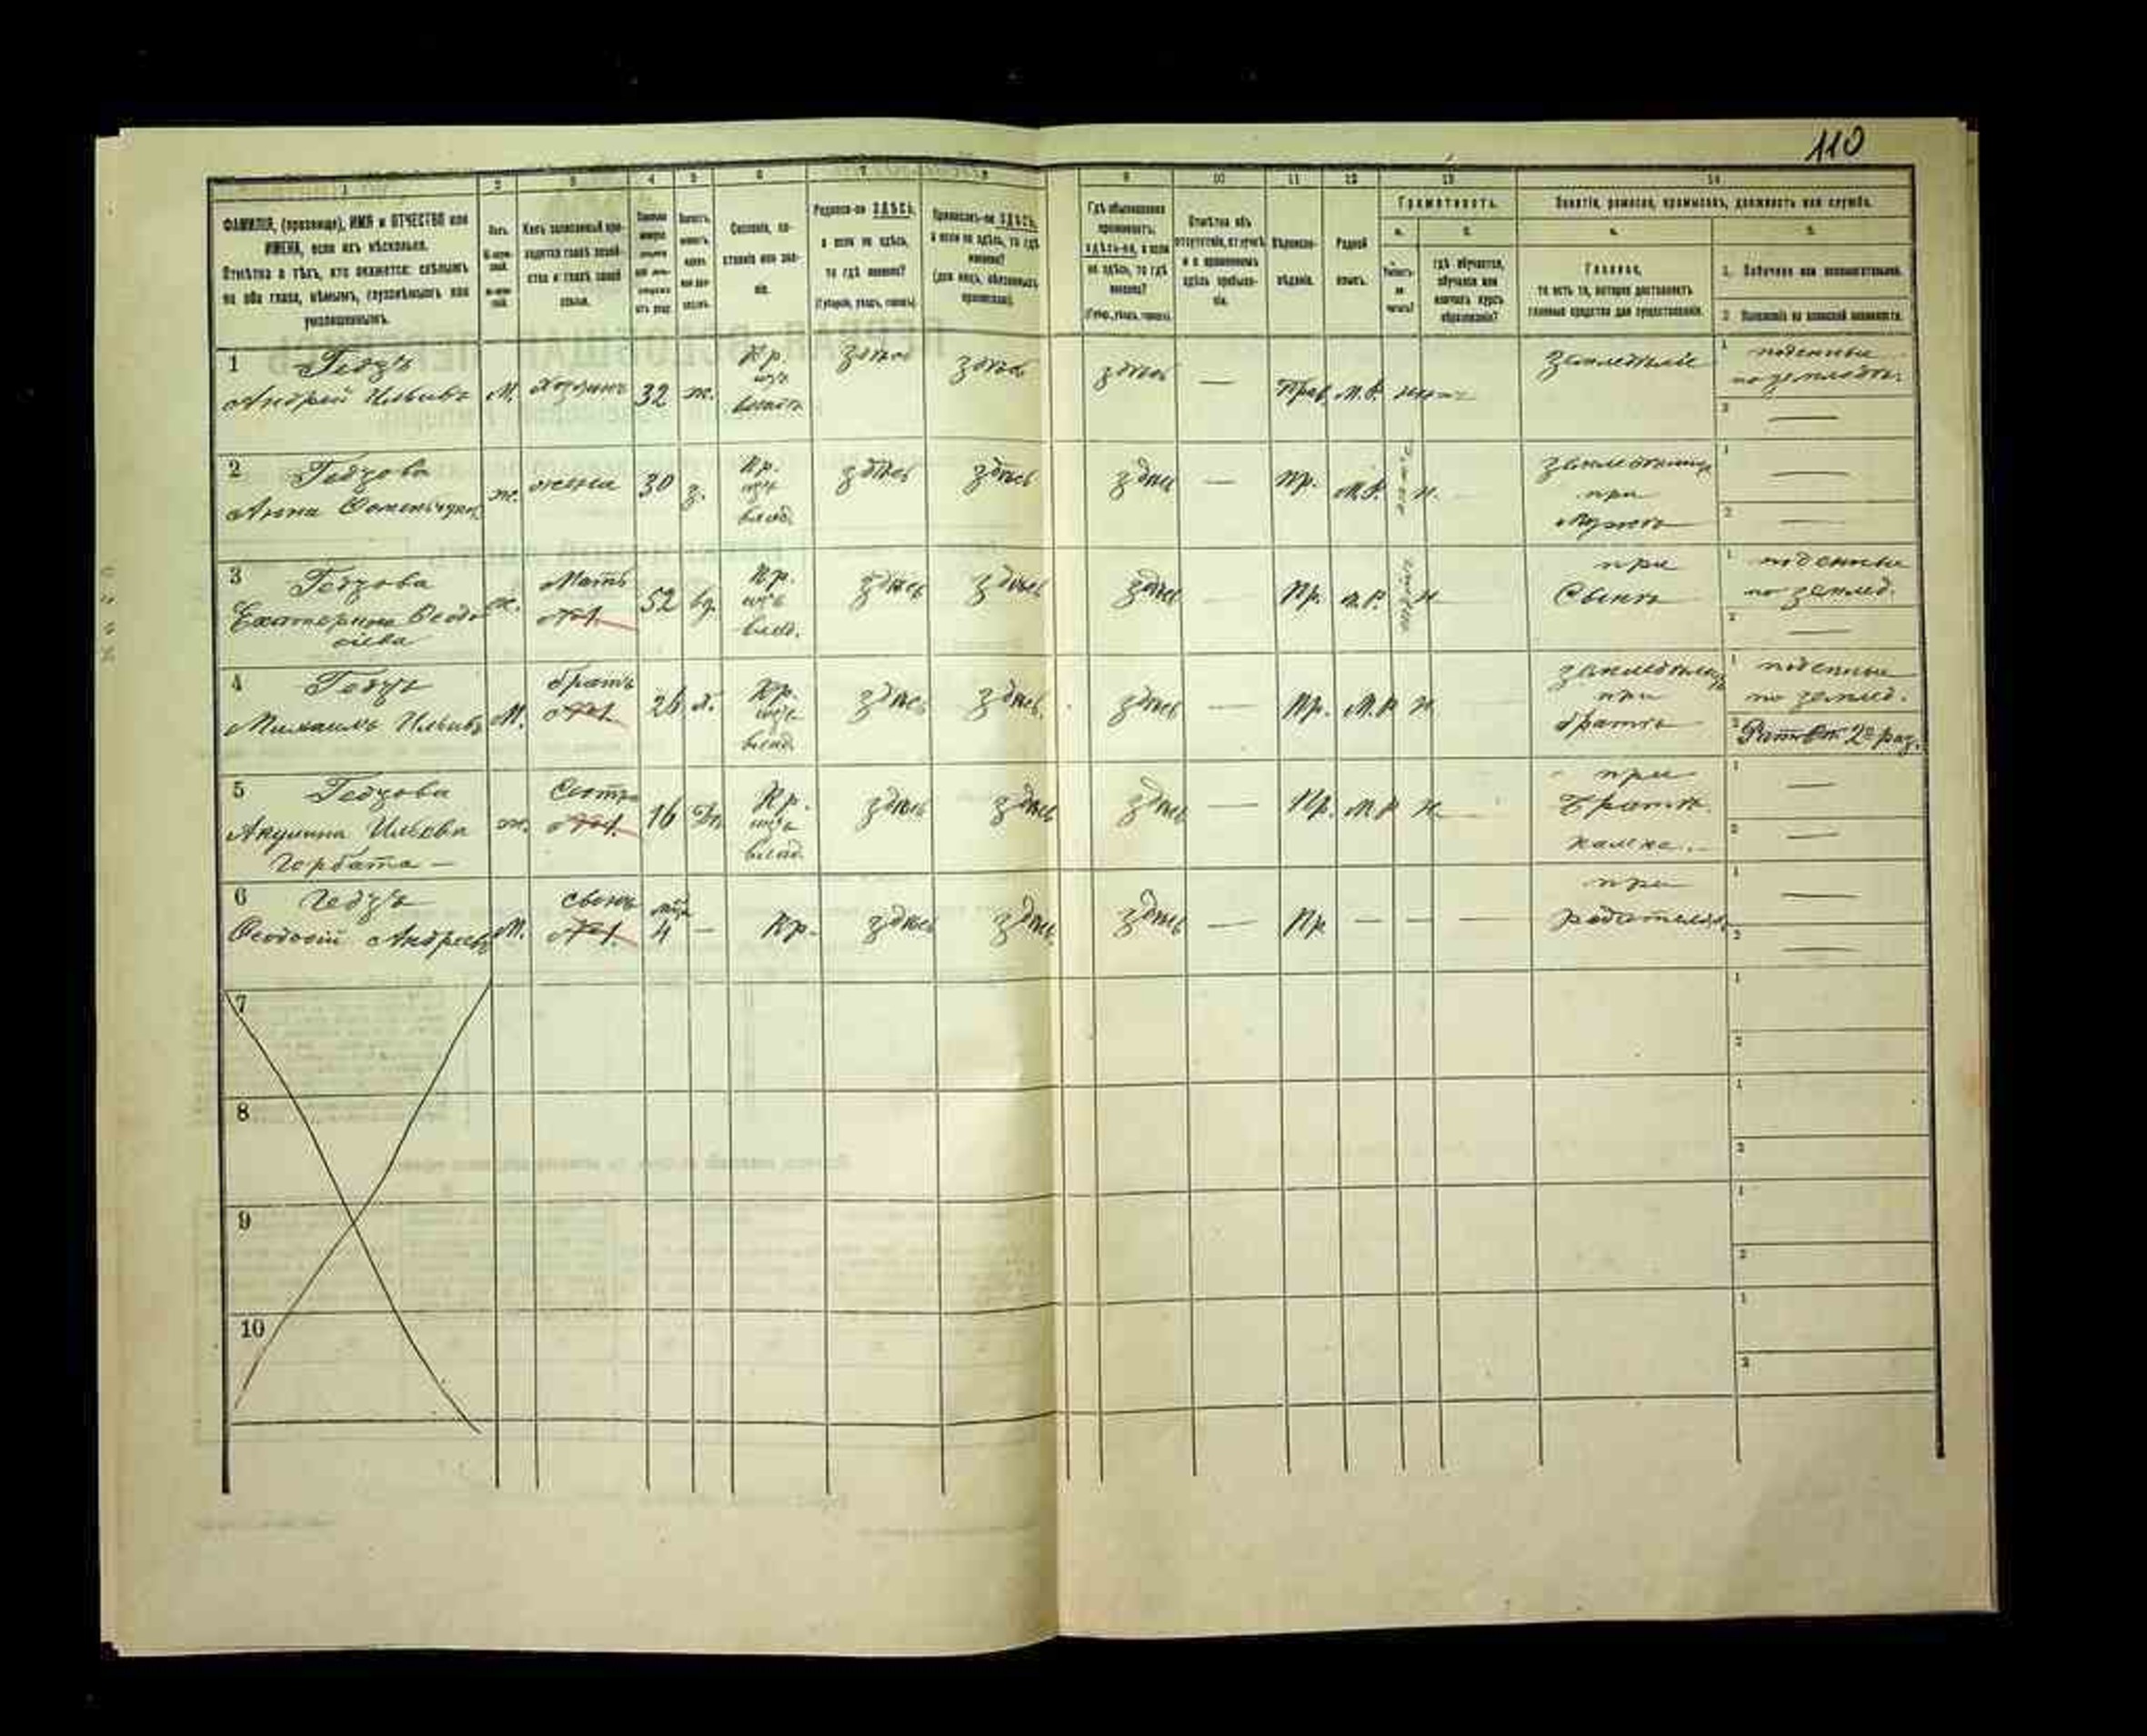 110
1 2 3 4 5 6 7 8 9 10 11 12 13 14
ФАМИЛІЯ, (прозвище), ИМЯ и ОТЧЕСТВО или
ИМЕНА, если ихъ нѣсколько.
Отмѣтка о тѣхъ, кто окажется: слѣпымъ
на оба глаза, нѣмымъ, глухонѣмымъ или
умалишеннымъ.
Полъ.
Какъ записанный при-
ходится главѣ хозяй-
ства и главѣ своей
семьи.
Сословіе, со-
стояніе или зва-
ніе.
Родился-ли ЗДѢСЬ,
а если не здѣсь,
то гдѣ именно?
(Губернія, уѣздъ, городъ).
Приписанъ-ли ЗДѢСЬ,
а если не здѣсь, то гдѣ
именно?
(для лицъ, обязанныхъ
припиской).
Гдѣ обыкновенно
проживаетъ:
здѣсь-ли, а если
не здѣсь, то гдѣ
именно?
(Губер., уѣздъ, городъ).
Отмѣтка объ
отсутствіи, отлучкѣ
и о временномъ
здѣсь пребыва-
ніи.
Вѣроиспо-
вѣданіе.
Родной
языкъ.
Грамотность.
а. б.
Умѣетъ-
ли
читать?
гдѣ обучается,
обучался или
кончилъ курсъ
образованія?
Занятіе, ремесло, промыселъ, должность или служба.
а. б.
Главное,
то есть то, которое доставляетъ
главныя средства для существованія.
1. Побочное или вспомогательное.
2. Положеніе по воинской повинности.
1 Гедзъ
Андрей Ильивъ М. хозяинъ 32 ж. Кр. изъ владѣл. здѣсь здѣсь здѣсь — Прав. М.Р. нѣтъ — земледѣліе 1 поденные по земледѣл. 2 —
2 Гедзова
Анна ж. жена 30 з. Кр. изъ влад. здѣсь здѣсь здѣсь — пр. М.Р. н. при мужѣ 1 — 2 —
3 Гедзова
Екатерина Ѳеодо
сіева ж. Мать 52 вд. Кр. изъ влад. здѣсь здѣсь здѣсь Пр. М.Р. н при Сынѣ 1 поденные по землед. 2 —
4 Гедзъ
Михаилъ Ильивъ М. братъ 26 х. Кр. изъ влад. здѣсь здѣсь здѣсь — Пр. М.Р н. земледѣлецъ при братѣ 1 поденные по землед. 2 2º раз.
5 Гедзова
Акулина Ильева
горбата — ж. Сестра 16 Кр. изъ влад. здѣсь здѣсь здѣсь — Пр. М.Р н. при братѣ 1 — 2 —
6 Гедзъ
Ѳеодосій Андреевъ М. сынъ 4 — Кр. здѣсь здѣсь здѣсь — Пр — — — при родителяхъ 1 — 2 —
7 1 2
8 1 2
9 1 2
10 1 2